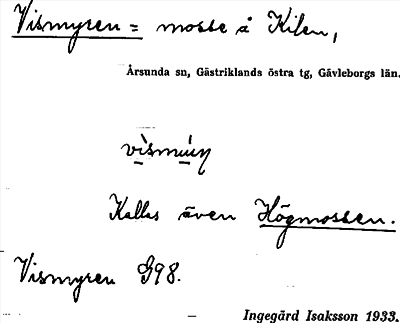 Vismyren = mosse å Kilen,
Årsunda sn, Gästriklands östra tg, Gävleborgs län.
Kallas även Högmossen.
Vismyren G98.
Ingegärd Isaksson 1933.